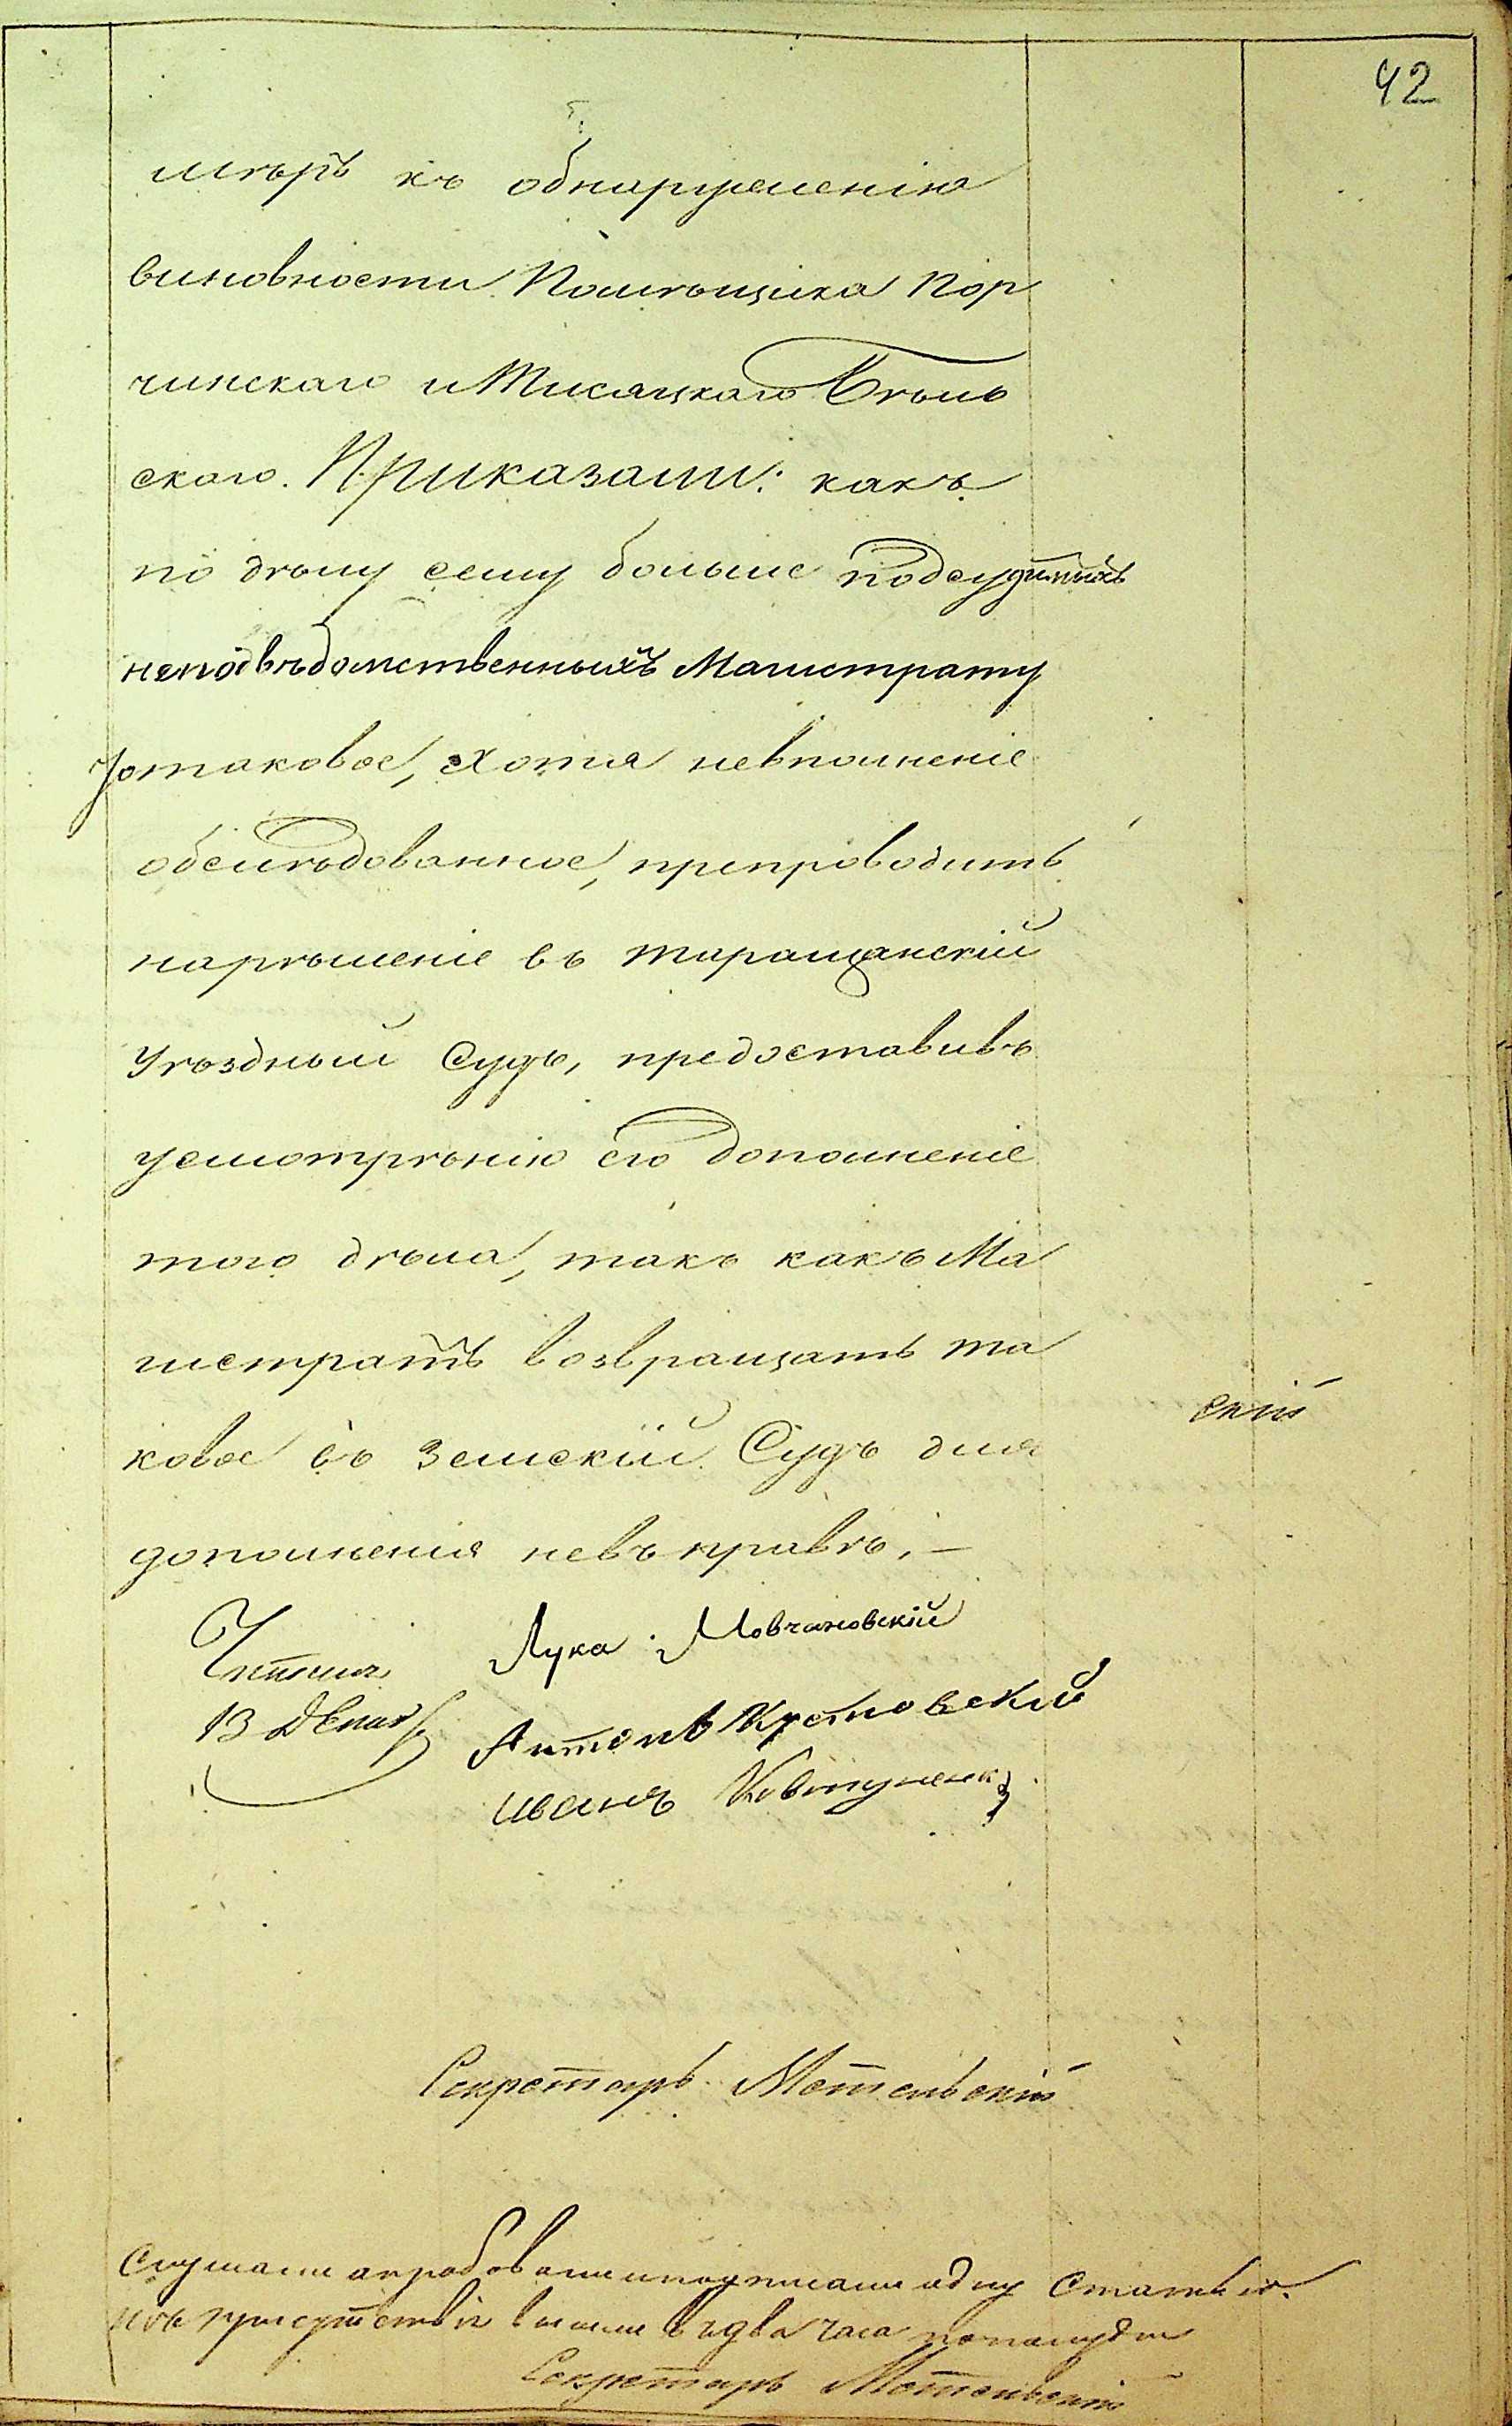 42
мѣръ къ обнаруженію
виновности Помѣщика Пор
чинскаго и Тисяцкаго Бѣль
скаго. Приказали: какъ
по дѣлу сему больше подсудимыхъ
неподвѣдомственныхъ Магистрату
то таковое, хотя невполнѣніе
обслѣдованное, препроводить
нарѣшеніе въ Таращанскій
Уѣздный Судъ, предоставивъ
усмотрѣнію его дополненіе
того дѣла, такъ какъ Ма
гистратъ возвращать та
ковое въ Земскій Судъ для
скій
дополненія невъправѣ, —
Читалъ Лука Мовчановскій
13 Декаб Антонъ
Иванъ Ковтуненко
Секретарь Метельскій
Слушали апробовали и подписали одну статью.
изъ присутствія вышли въ два часа пополудни
Секретарь Метельскій